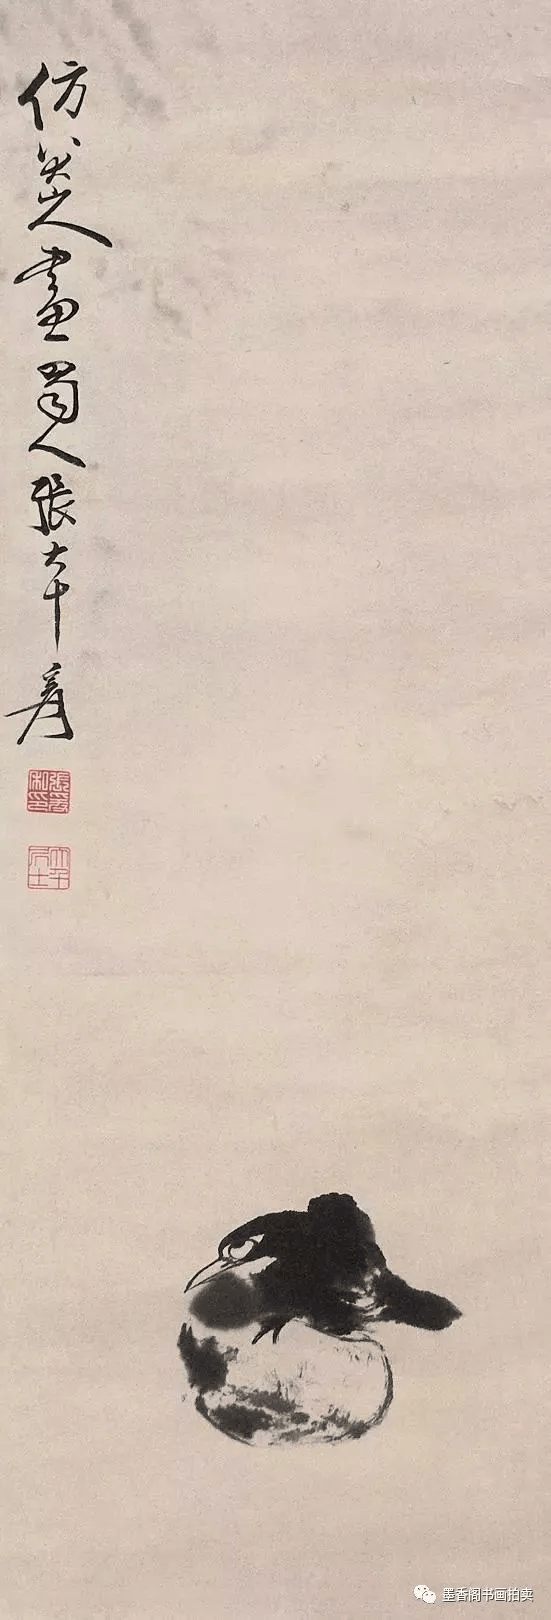 仿八大山人畫蜀人張大千爰
張爰私印
大千居士
墨香阁书画拍卖